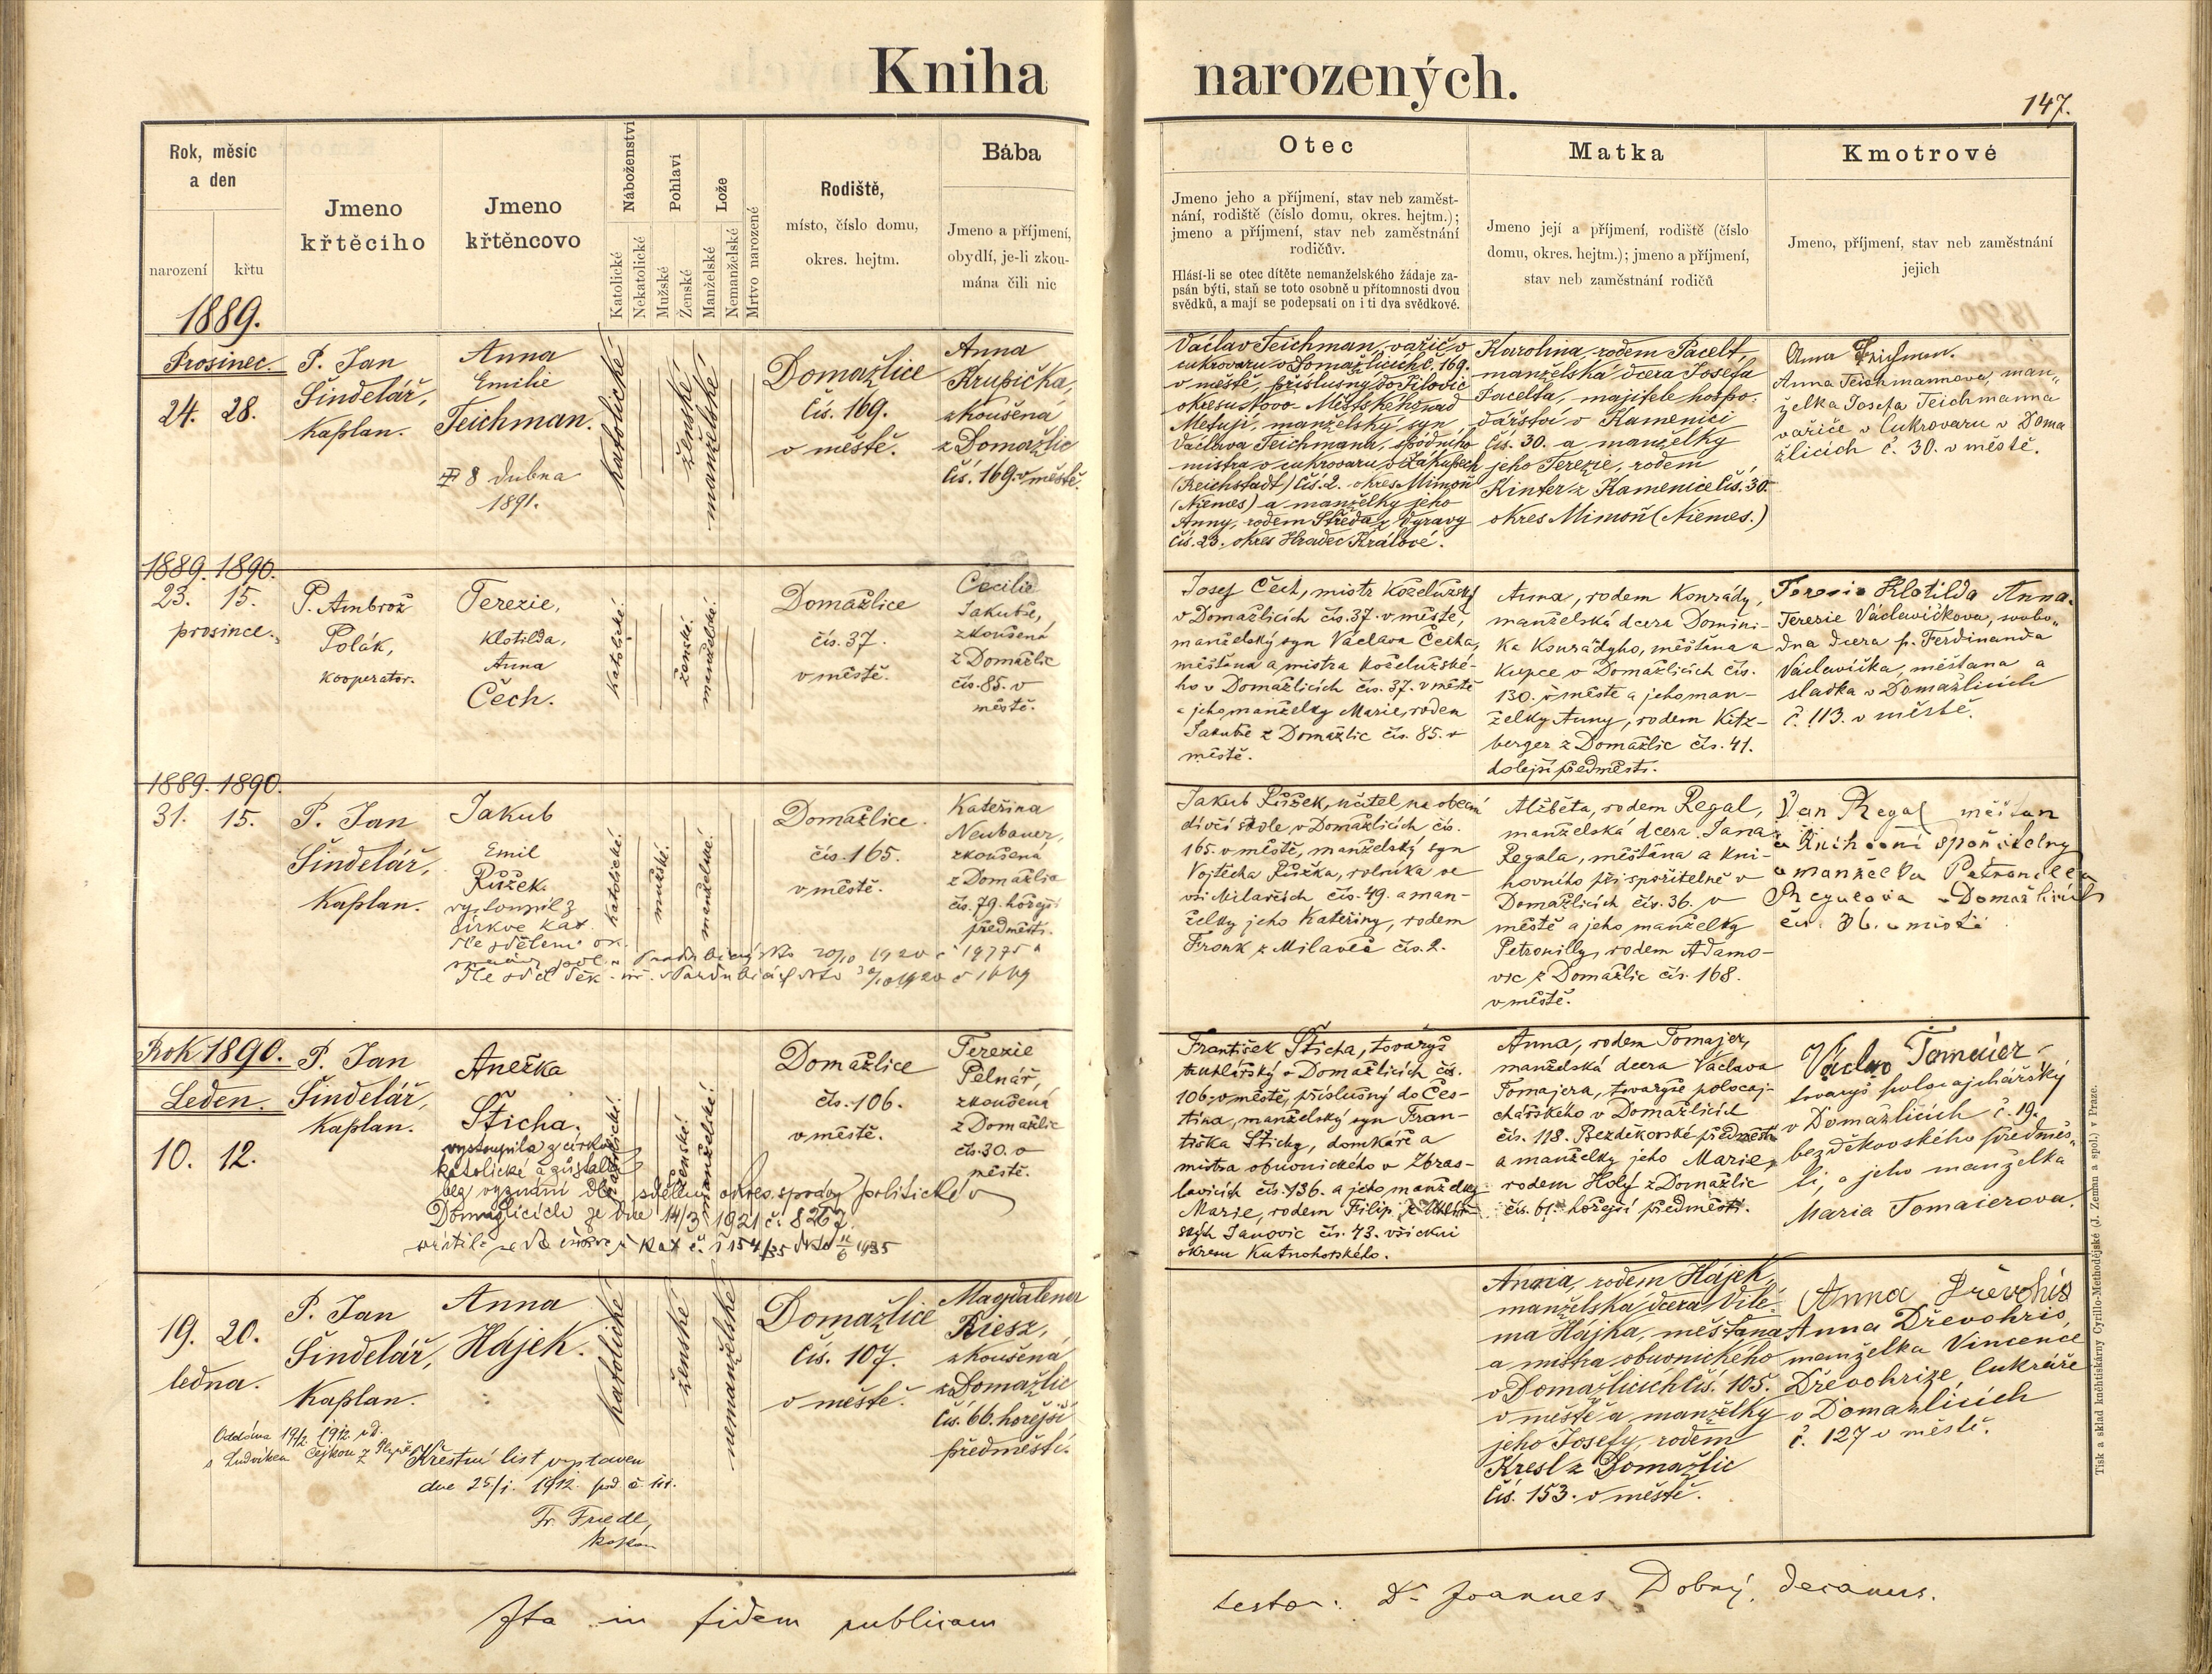 Kniha narozených.
147.
Rok, měsíc
a den
narození
křtu
Jmeno
křtěcího
Jmeno
křtěncovo
Náboženství
Katolické
Nekatolické
Pohlaví
Mužské
Ženské
Lože
Manželské
Nemanželské
Mrtvo narozené
Rodiště,
místo, číslo domu,
okres. hejtm.
Bába
Jmeno a příjmení,
obydlí, je-li zkou-
mána čili nic
Otec
Jmeno jeho a příjmení, stav neb zaměst-
nání, rodiště (číslo domu, okres. hejtm.);
jmeno a příjmení, stav neb zaměstnání
rodičův.
Hlásí-li se otec dítěte nemanželského žádaje za-
psán býti, staň se toto osobně u přítomnosti dvou
svědků, a mají se podepsati on i ti dva svědkové.
Matka
Jmeno její a příjmení, rodiště (číslo
domu, okres. hejtm.); jmeno a příjmení,
stav neb zaměstnání rodičů
Kmotrové
Jmeno, příjmení, stav neb zaměstnání
jejich
1889.
Prosinec.
24. 28.
P. Jan
Šindelář,
Kaplan.
Anna
Emilie
Teichman.
8 dubna
1891.
katolické
ženské
manželské
Domažlice
čís. 169.
v městě.
Anna
Krupička,
zkoušená
z Domažlic
čís. 169. v městě.
Václav Teichman, vařič v
cukrovaru v Domažlicích č. 169.
v městě, příslušný do Šilovic
okresu Novo-Městského nad
Metují, manželský syn
Václava Teichmana, spódního
mistra v cukrovaru v Zákupech
(Reichstadt) čís. 2. okres Mimoň
(Niemes) a manželky jeho
Anny, rodem Středa z Vyravy
čís. 23. okres Hradec Králové.
Karolina, rodem Pacelt,
manželská dcera Josefa
Pacelta, majitele hospo-
dářství v Kamenici
čís. 30. a manželky
jeho Terezie, rodem
Kinter z Kamenice čís. 30.
okres Mimoň (Niemes.)
Anna Teichman.
Anna Teichmannova, man„
želka Josefa Teichmanna
vařiče v Cukrovaru v Doma
žlicích č. 30. v městě.
1889. 1890.
23. 15.
prosince.
P. Ambrož
Polák,
kooperator.
Terezie,
Klotilda,
Anna
Čech.
katolické.
ženské.
manželské.
Domažlice
čís. 37.
v městě.
Cecilie
Jakubě,
zkoušená
z Domažlic
čís. 85. v
městě.
Josef Čech, mistr koželužský
v Domažlicích čís. 37. v městě,
manželský syn Václava Čecha,
měšťana a mistra koželužské-
ho v Domažlicích čís. 37. v městě
a jeho manželky Marie, rodem
Jakubě z Domažlic čís. 85. v
městě.
Anna, rodem Konrády,
manželská dcera Domini-
ka Konrádyho, měšťana a
kupce v Domažlicích čís.
130. v městě a jeho man-
želky Anny, rodem Kitz-
berger z Domažlic čís. 41.
dolejší předměstí.
Terezie Klotilda Anna.
Terezie Václavíčkova, svobo„
dna dcera p. Ferdinanda
Václavíčka, měšťana a
sladka v Domažlicích
č. 113. v městě.
1889. 1890.
31. 15.
P. Jan
Šindelář,
Kaplan.
Jakub
Emil
Růžek.
vystoupil z
církve kat.
dle sdělení ok.
20/10 1920
dle sděl děk. 1920
katolické.
mužské.
manželské.
Domažlice.
čís. 165.
v městě.
Kateřina
Neubauer,
zkoušená
z Domažlic
čís. 79. hořejší
předměstí.
Jakub Růžek, učitel na obecné
dívčí škole, v Domažlicích čís.
165. v městě, manželský syn
Vojtěcha Růžka, rolníka ve
vsi Milavčích čís. 49. a man-
želky jeho Kateřiny, rodem
Fronk z Milavčí čís. 2.
Alžběta, rodem Regal,
manželská dcera Jana
Regala, měšťana a kni-
hovního při spořitelně v
Domažlicích, čís. 36. v
městě a jeho manželky
Petronilly, rodem Adamo-
vic z Domažlic čís. 168.
v městě.
Jan Regal měštan
a knihovní spořitelny
a manželka Petronella
Regalova v Domažlicích
čís. 36. v městě
Rok 1890.
Leden.
10. 12.
P. Jan
Šindelář,
Kaplan.
Anežka
Šticha.
vystoupila z církve
katolické a zůstala
bez vyznání dle sdělení okres. správy politické v
Domažlicích ze dne 14/3 1921 č. 8267.
vrátila se do církve kat č. 1154/35 11/6 1935
katolické.
ženské.
manželské.
Domažlice
čís. 106.
v městě.
Terezie
Pelnář,
zkoušená
z Domažlic
čís. 30. v
městě.
František Šticha, tovaryš
truhlářský v Domažlicích čís.
106. v městě, příslušný do Čes-
tína, manželský syn Fran-
tiška Štichy, domkáře a
mistra obuvnického v Zbras-
lavicích čís. 136. a jeho manželky
Marie, rodem Filip
Janovic čís. 43. všickni
okresu Kutnohorského.
Anna, rodem Tomajer,
manželská dcera Václava
Tomajera, tovaryše polocaj-
chářského v Domažlicích
čís. 118. Bezděkovské předměstí
a manželky jeho Marie,
rodem Holý z Domažlic
čís. 61. hořejší předměstí.
Václav Tomaier
tovaryš polocajchářský
v Domažlicích č. 19.
bezděkovského předměs„
tí, a jeho manželka
Maria Tomaierova.
19. 20.
ledna.
P. Jan
Šindelář,
Kaplan.
Anna
Hájek.
katolické
ženské
nemanželské
Domažlice
čís. 107.
v městě.
Magdalena
Riesz,
zkoušená
z Domažlic
čís. 66. hořejší
předměstí.
Anna, rodem Hájek,
manželská dcera Vilé-
ma Hájka, měšťana
a mistra obuvnického
v Domažlicích čís. 105.
v městě a manželky
jeho Josefy, rodem
Kresl z Domažlic
čís. 153. v městě.
Anna Dřevohris
Anna Dřevohris,
manželka Vincence
Dřevohrize, Cukráře
v Domažlicích
č. 127 v městě.
Oddána 19/2 1912
s Ludvíkem Čejkou z Plzně
Křestní list vystaven
dne 25/I. 1912. pod č. 101.
Fr. Friedl,
kaplan
Ita in fidem publicam
testor: Dr Joannes Dobrý, decanus.
Tisk a sklad kněhtiskárny Cyrillo-Methodějské (J. Zeman a spol.) v Praze.